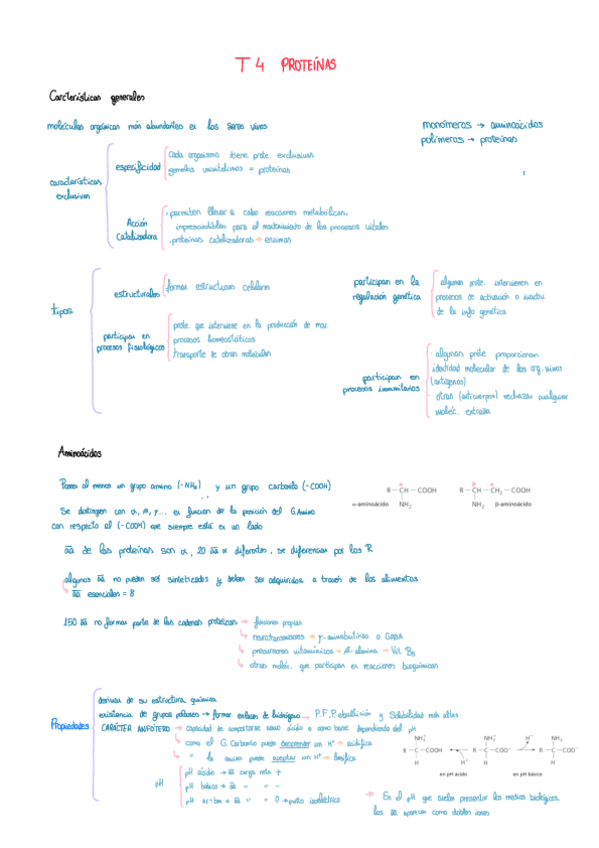 T 4 PROTEÍNAS
Carcterísticas generales
moléculas orgánicas más abundantes en los seres vivos
monómeros → aminoácidos
polímeros → proteínas
características
exclusivas
especificidad
Cada organismo tiene prote. exclusivas
gemelos univitelinos = proteínas
Acción
Catalizadora
· permiten llevar a cabo reacciones metabólicas,
imprescindibles para el mantenimiento de los procesos vitales
· proteínas catalizadoras → enzimas
tipos
estructurales
forman estructuras celulares
participan en
procesos fisiológicos
prote. que interviene en la producción de mov.
procesos homeostáticos
transporte de otras moléculas
participan en la
regulación genética
algunas prote. intervienen en
procesos de activación o inactiv.
de la info genética
participan en
procesos inmunitarios
· algunas prote. proporcionan
identidad molecular de los org. vivos
(antígenos)
· otras (anticuerpos) rechazan cualquier
moléc. extraña
Aminoácidos
Poseen al menos un grupo amino (-NH₂) y un grupo carboxilo (-COOH)
Se distinguen con α, β, γ... en función de la posición del G.Amino
con respecto al (-COOH) que siempre está en un lado
aa de las proteínas son α, 20 aa ≠ diferentes, se diferencian por los R
algunos aa no pueden ser sintetizados y deben ser adquiridos a través de los alimentos
↳ aa esenciales = 8
R — CH — COOH
NH₂
α-aminoácido
R — CH — CH₂ — COOH
NH₂
β-aminoácido
150 aa no forman parte de las cadenas proteicas → funciones propias
↳ neurotransmisores → γ-aminobutírico o GABA
↳ precursores vitamínicos → β-alanina → Vit. B₅
↳ otras moléc. que participan en reacciones bioquímicas
Propiedades
derivan de su estructura química
existencia de grupos polares → formar enlaces de hidrógeno → P.F, P. ebullición y Solubilidad más altas
CARÁCTER ANFÓTERO → capacidad de comportarse como ácido o como base dependiendo del pH
↳ como el G. Carboxilo puede desprender un H⁺ → acidifica
↳ " la amina puede aceptar un H⁺ → basifica
pH
pH ácido → aa carga neta +
pH básico → aa " " -
aa " " 0 → punto isoeléctrico
NH₃⁺
R — C — COOH
H
H⁺
NH₃⁺
R — C — COO⁻
H
H⁺
NH₂
R — C — COO⁻
H
en pH ácido
en pH básico
→ En el pH que suelen presentar los medios biológicos,
los aa aparecen como dobles iones